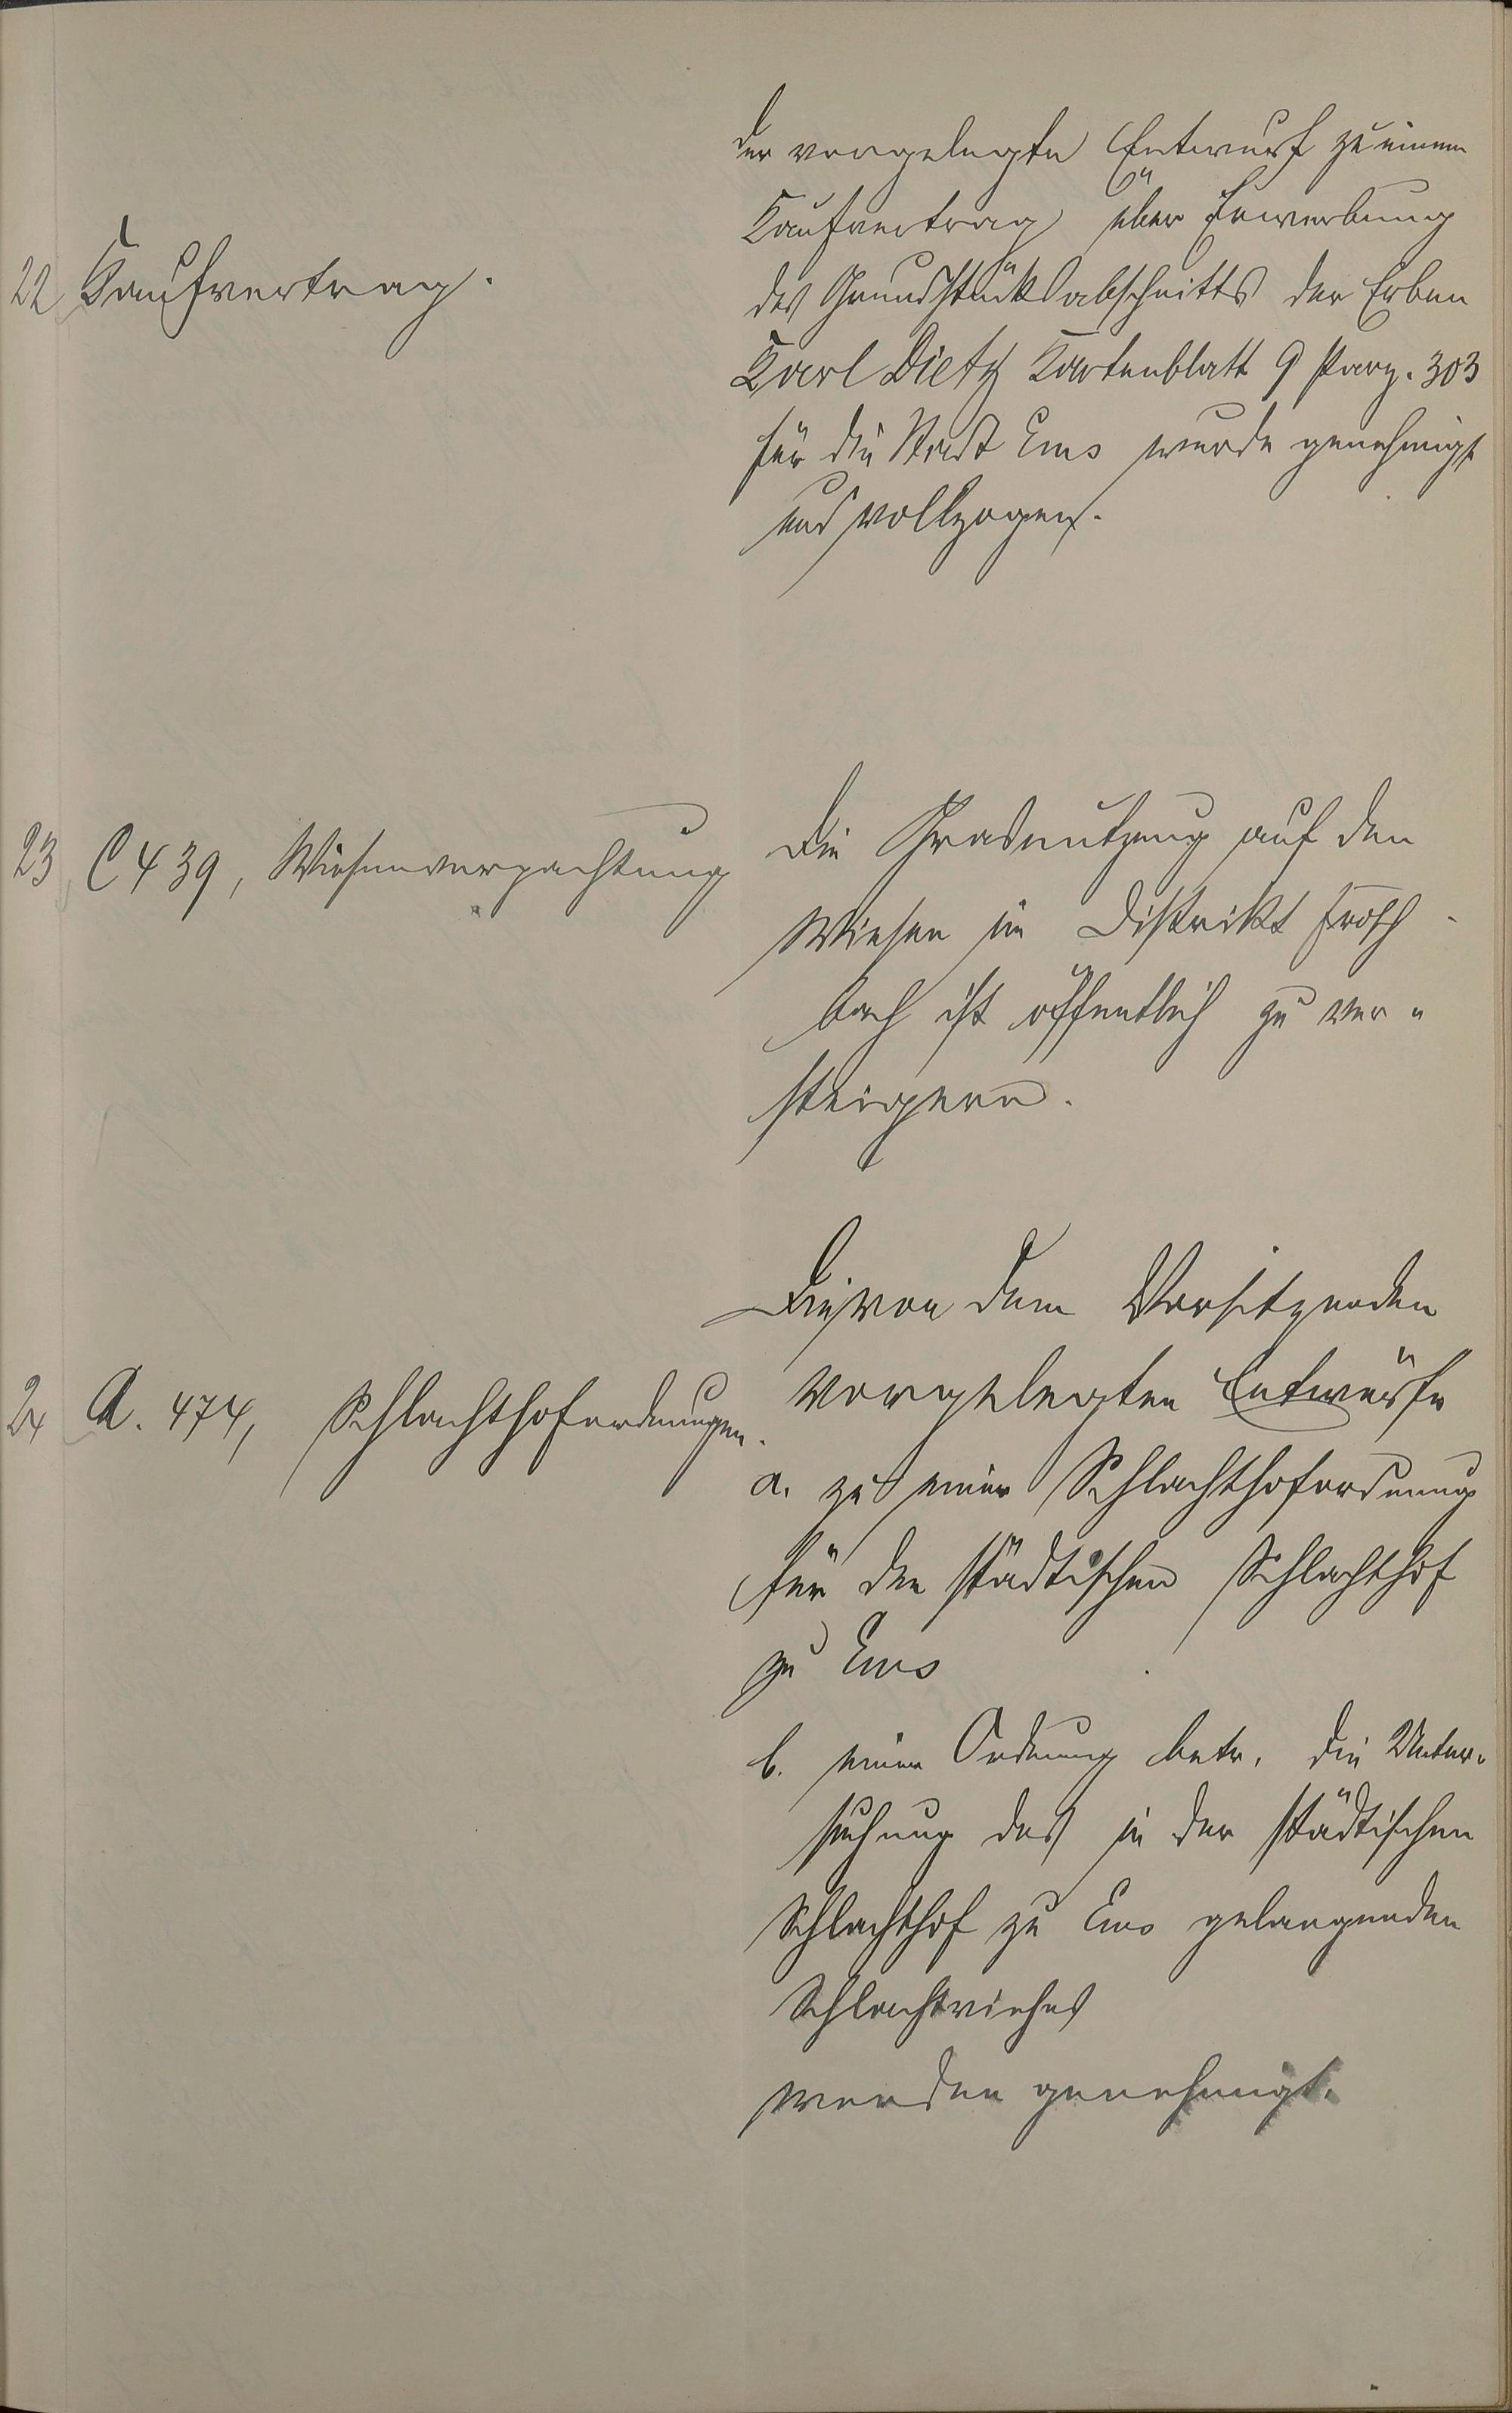 22 Kaufvertrag.
der vorgelegte Entwurf zu einem
Kaufvertrag über Erwerbung
des Grundstücksabschnitts der Erben
Karl Dietz Kartenblatt 9 Parz. 303
für die Stadt Ems wurde genehmigt
und vollzogen.
23 C 439, Wiesenverpachtung
Die Grasnutzung auf den
Wiesen im Distrikt Frosch-
bach ist öffentlich zu ver-
steigern.
24 A. 474, Schlachthofordnungen.
Die von dem Vorsitzenden
vorgelegten Entwürfe
a. zu einer Schlachthofordnung
für den städtischen Schlachthof
zu Ems
b. einer Ordnung betr. die Unter-
suchung des in den städtischen
Schlachthof zu Ems gelangenden
Schlachtviehes
werden genehmigt.